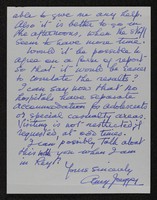 able to give me any help.
Also it is better to go in
the afternoons, when the staff
seem to have more time.
Would it be possible to
agree on a form of report
so that it would be easier
to correlate the results?
I can say now that no
hospitals have separate
accommodation for adolescents
or special casualty areas.
Visiting is not restricted if
requested at odd times.
I can possibly talk about
this when I am
in Reyl?
Yours sincerely